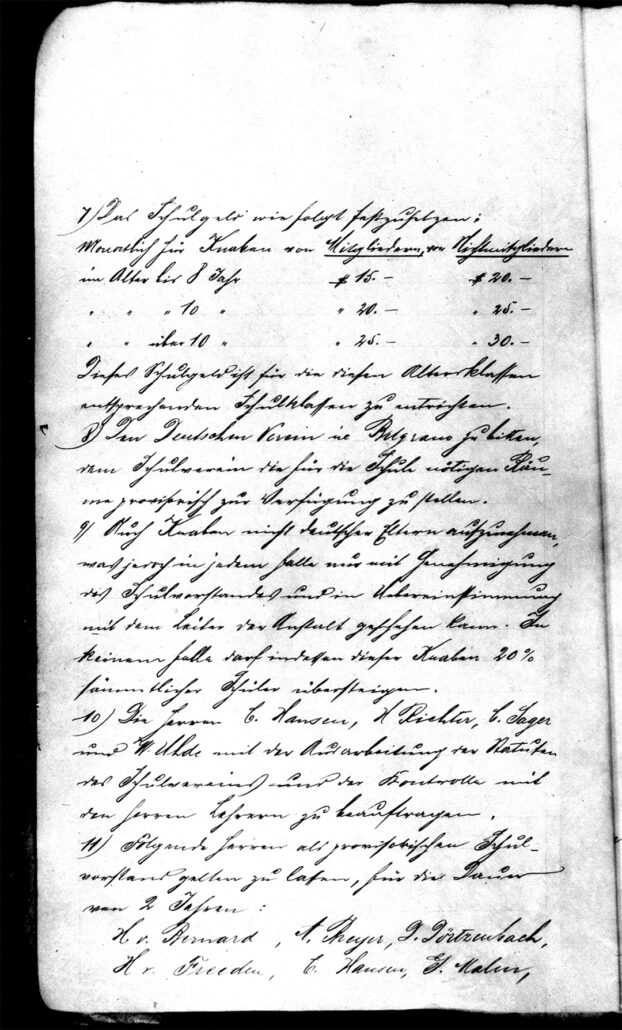 7) Das Schulgeld wie folgt festzusetzen:
Monatlich für Knaben von Mitgliedern, von Nichtmitgliedern
im Alter bis 8 Jahr $ 15.- $ 20.-
" " " 10 " " 20.- " 25.-
" " über 10 " " 25.- " 30.-
Dieses Schulgeld ist für die diesen Altersklassen
entsprechenden Schulklassen zu entrichten.
8) Den Deutschen Verein in Belgrano zu bitten,
dem Schulverein die für die Schule nötigen Räu-
me provisorisch zur Verfügung zu stellen.
9) Auch Knaben nicht deutscher Eltern aufzunehmen,
was jedoch in jedem Falle nur mit Genehmigung
des Schulvorstandes und in Uebereinstimmung
mit dem Leiter der Anstalt geschehen kann. In
keinem Falle darf indessen dieser Knaben 20%
sämmtlicher Schüler übersteigen.
10) Die Herren C. Hansen, H Richter, C. Sager
und W. Uhde mit der Ausarbeitung der Statuten
des Schulvereins und der Kontrolle mit
den Herren Lehrern zu beauftragen.
11) Folgende Herren als provisorischen Schul-
vorstand gelten zu lassen, für die Dauer
von 2 Jahren:
H. v. Bernard, A. Breyer, D. Dörtzenbach,
H. v. Freeden, C. Hansen, G. Malm,